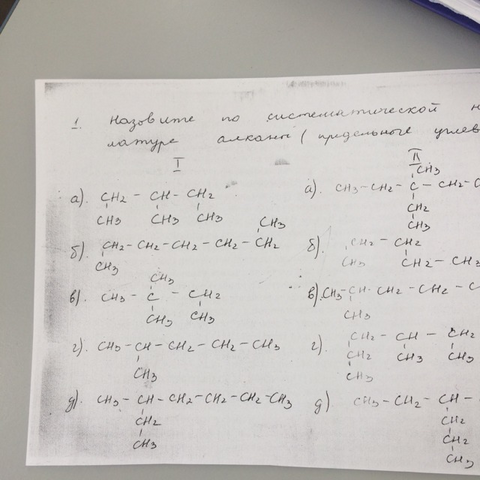 1. Назовите по систематической н
латуре алканы (предельные углев
I
а). CH2 - CH - CH2
CH3 CH3 CH3
б). CH2 - CH2 - CH2 - CH2 - CH2
CH3 CH3
CH3
в). CH3 - C - CH2
CH3 CH3
г). CH3 - CH - CH2 - CH2 - CH3
CH3
д). CH3 - CH - CH2 - CH2 - CH2 - CH3
CH2
CH3
II
CH3
а). CH3 - CH2 - C - CH2 - C
CH2
CH3
б). CH2 - CH2
CH3 CH2 - CH2
в). CH3 - CH - CH2 - CH2 - C
CH3
г). CH2 - CH - CH2
CH2 CH3 CH3
CH3
д). CH3 - CH2 - CH -
CH2
CH2
CH3